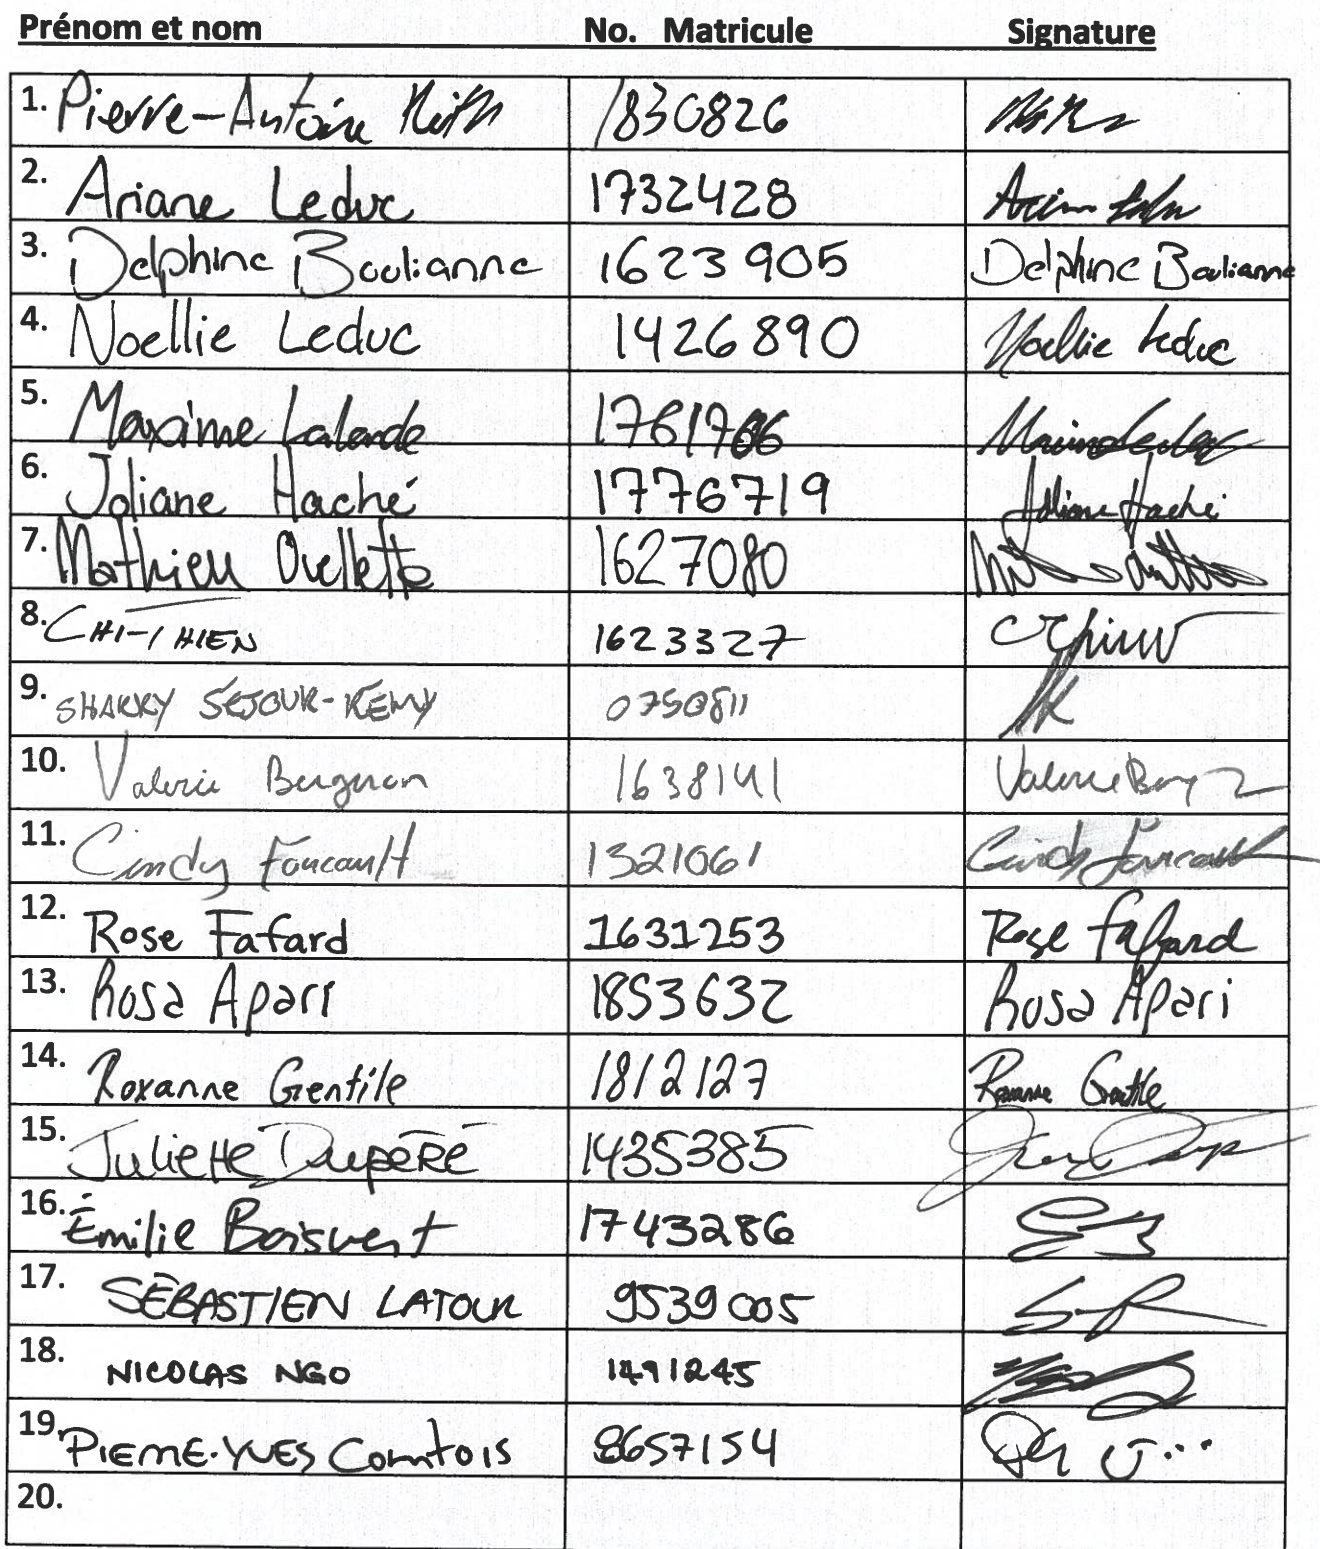 Prénom et nom No. Matricule Signature
1. Pierre-Antoine 1830826
2. Ariane Leduc 1732428
3. Delphine Boulianne 1623905 Delphine Boulianne
4. Noellie Leduc 1426890 Noellie Leduc
5. Maxime Lalande
6. Joliane Haché 1776719 Joliane Haché
7. Mathieu Ouellette 1627080
8. CHI-THIEN 1623327
9. SHARRY SÉJOUR-RÉMY 0750811
10. Valerie 1638141 Valerie
11. Cindy Foucault 1321061 Cindy Foucault
12. Rose Fafard 1631253 Rose Fafard
13. Rosa Apari 1853632 Rosa Apari
14. Roxanne Gentile 1812127 Roxanne Gentile
15. Juliette Dupéré 1435385
16. Émilie Boisvert 1743286
17. SÉBASTIEN LATOUR 9539005
18. NICOLAS NGO 1491245
19. PIERRE-YVES Comtois 8657154
20.